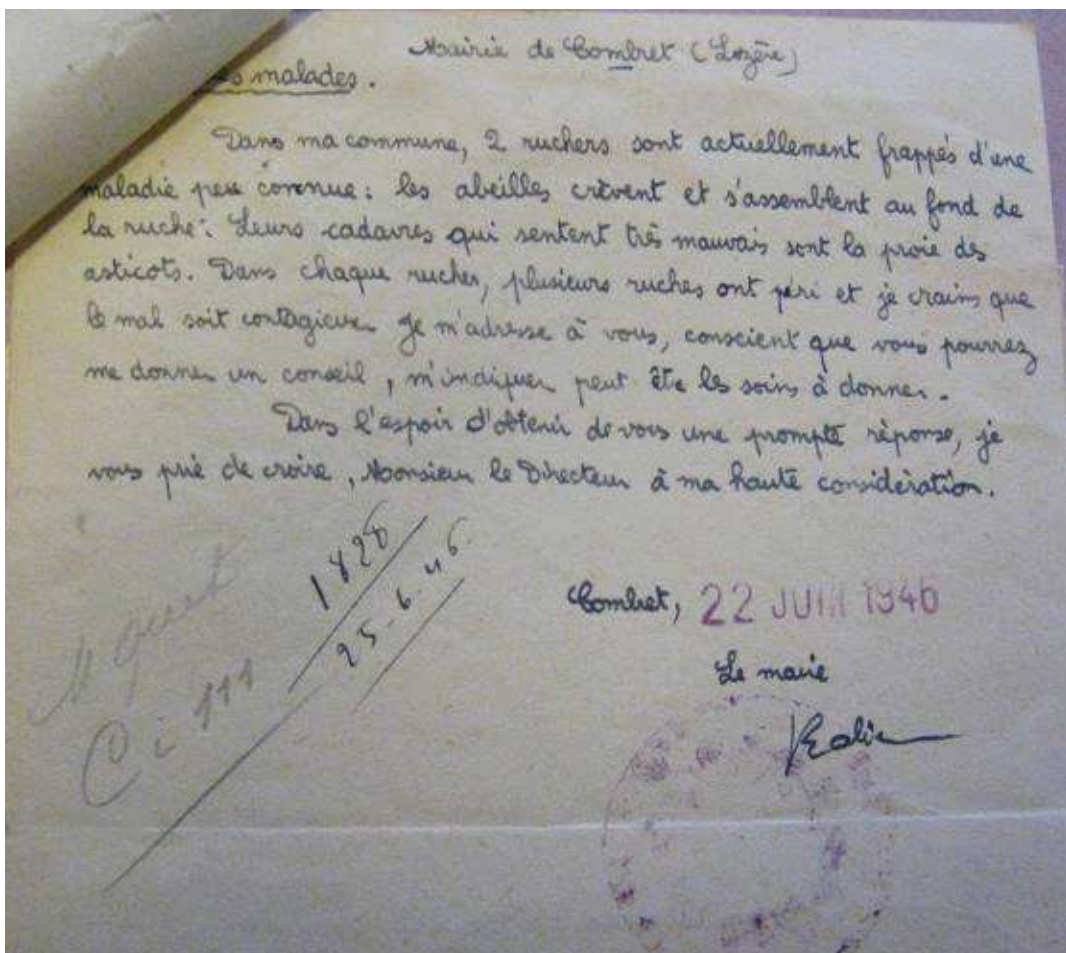 Mairie de Combret (Lozère)
malades.
Dans ma commune, 2 ruchers sont actuellement frappés d'une
maladie peu connue : les abeilles crèvent et s'assemblent au fond de
la ruche. Leurs cadavres qui sentent très mauvais sont la proie des
asticots. Dans chaque rucher, plusieurs ruches ont péri et je crains que
le mal soit contagieux. Je m'adresse à vous, conscient que vous pourrez
me donner un conseil, m'indiquer peut être les soins à donner.
Dans l'espoir d'obtenir de vous une prompte réponse, je
vous prie de croire, Monsieur le Directeur à ma haute considération.
1828
25-6-46
Ci 111
Combret, 22 JUIN 1946
Le maire